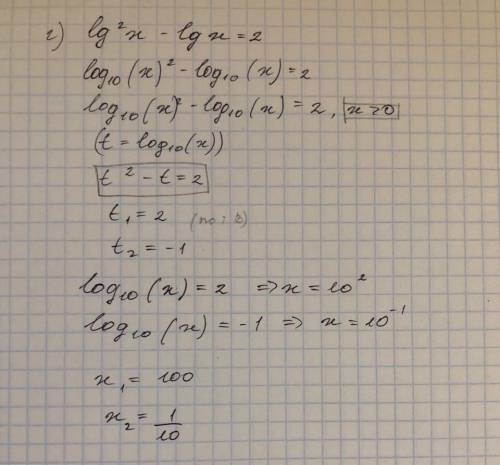 г) lg²x - lgx = 2
log₁₀(x)² - log₁₀(x) = 2
log₁₀(x)² - log₁₀(x) = 2, x > 0
(t = log₁₀(x))
t² - t = 2
t₁ = 2
t₂ = -1
log₁₀(x) = 2 => x = 10²
log₁₀(x) = -1 => x = 10⁻¹
x₁ = 100
x₂ = 1/10